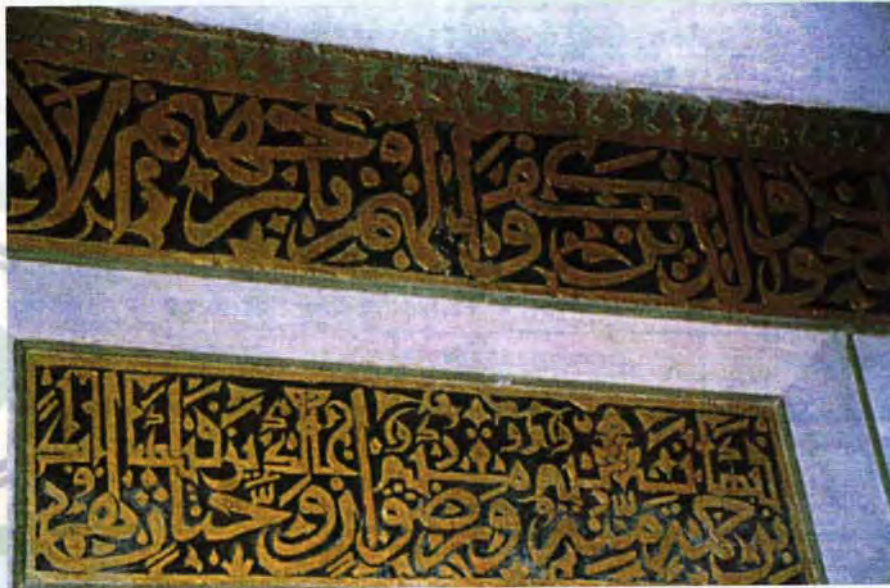 لغوب والذين كفروا لهم نار جهنم لا
برحمة منه ورضوان وجنات لهم
فيها نعيم مقيم خالدين فيها أبدا